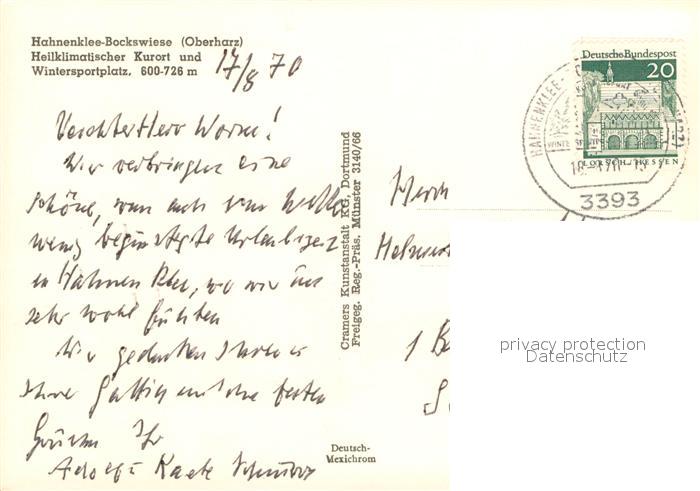 Hahnenklee-Bockswiese (Oberharz)
Heilklimatischer Kurort und
Wintersportplatz, 600-726 m
17/8 70
Verehrter Herr Worm!
Wir verbringen eine
schöne, wenn auch vom Wetter
wenig begünstigte Urlaubszeit
in Hahnenklee, wo wir uns
sehr wohl fühlten
Wir gedenken Ihrer u
Ihrer Gattin mit den besten
Grüssen Ihr
Adolf u Kaete
Cramers Kunstanstalt KG, Dortmund
Freigeg. Reg.-Präs. Münster 3140/66
Deutsch-
Mexichrom
Deutsche Bundespost
20
LORSCH/HESSEN
HAHNENKLEE-
3393
Herrn
1 Be
privacy protection
Datenschutz